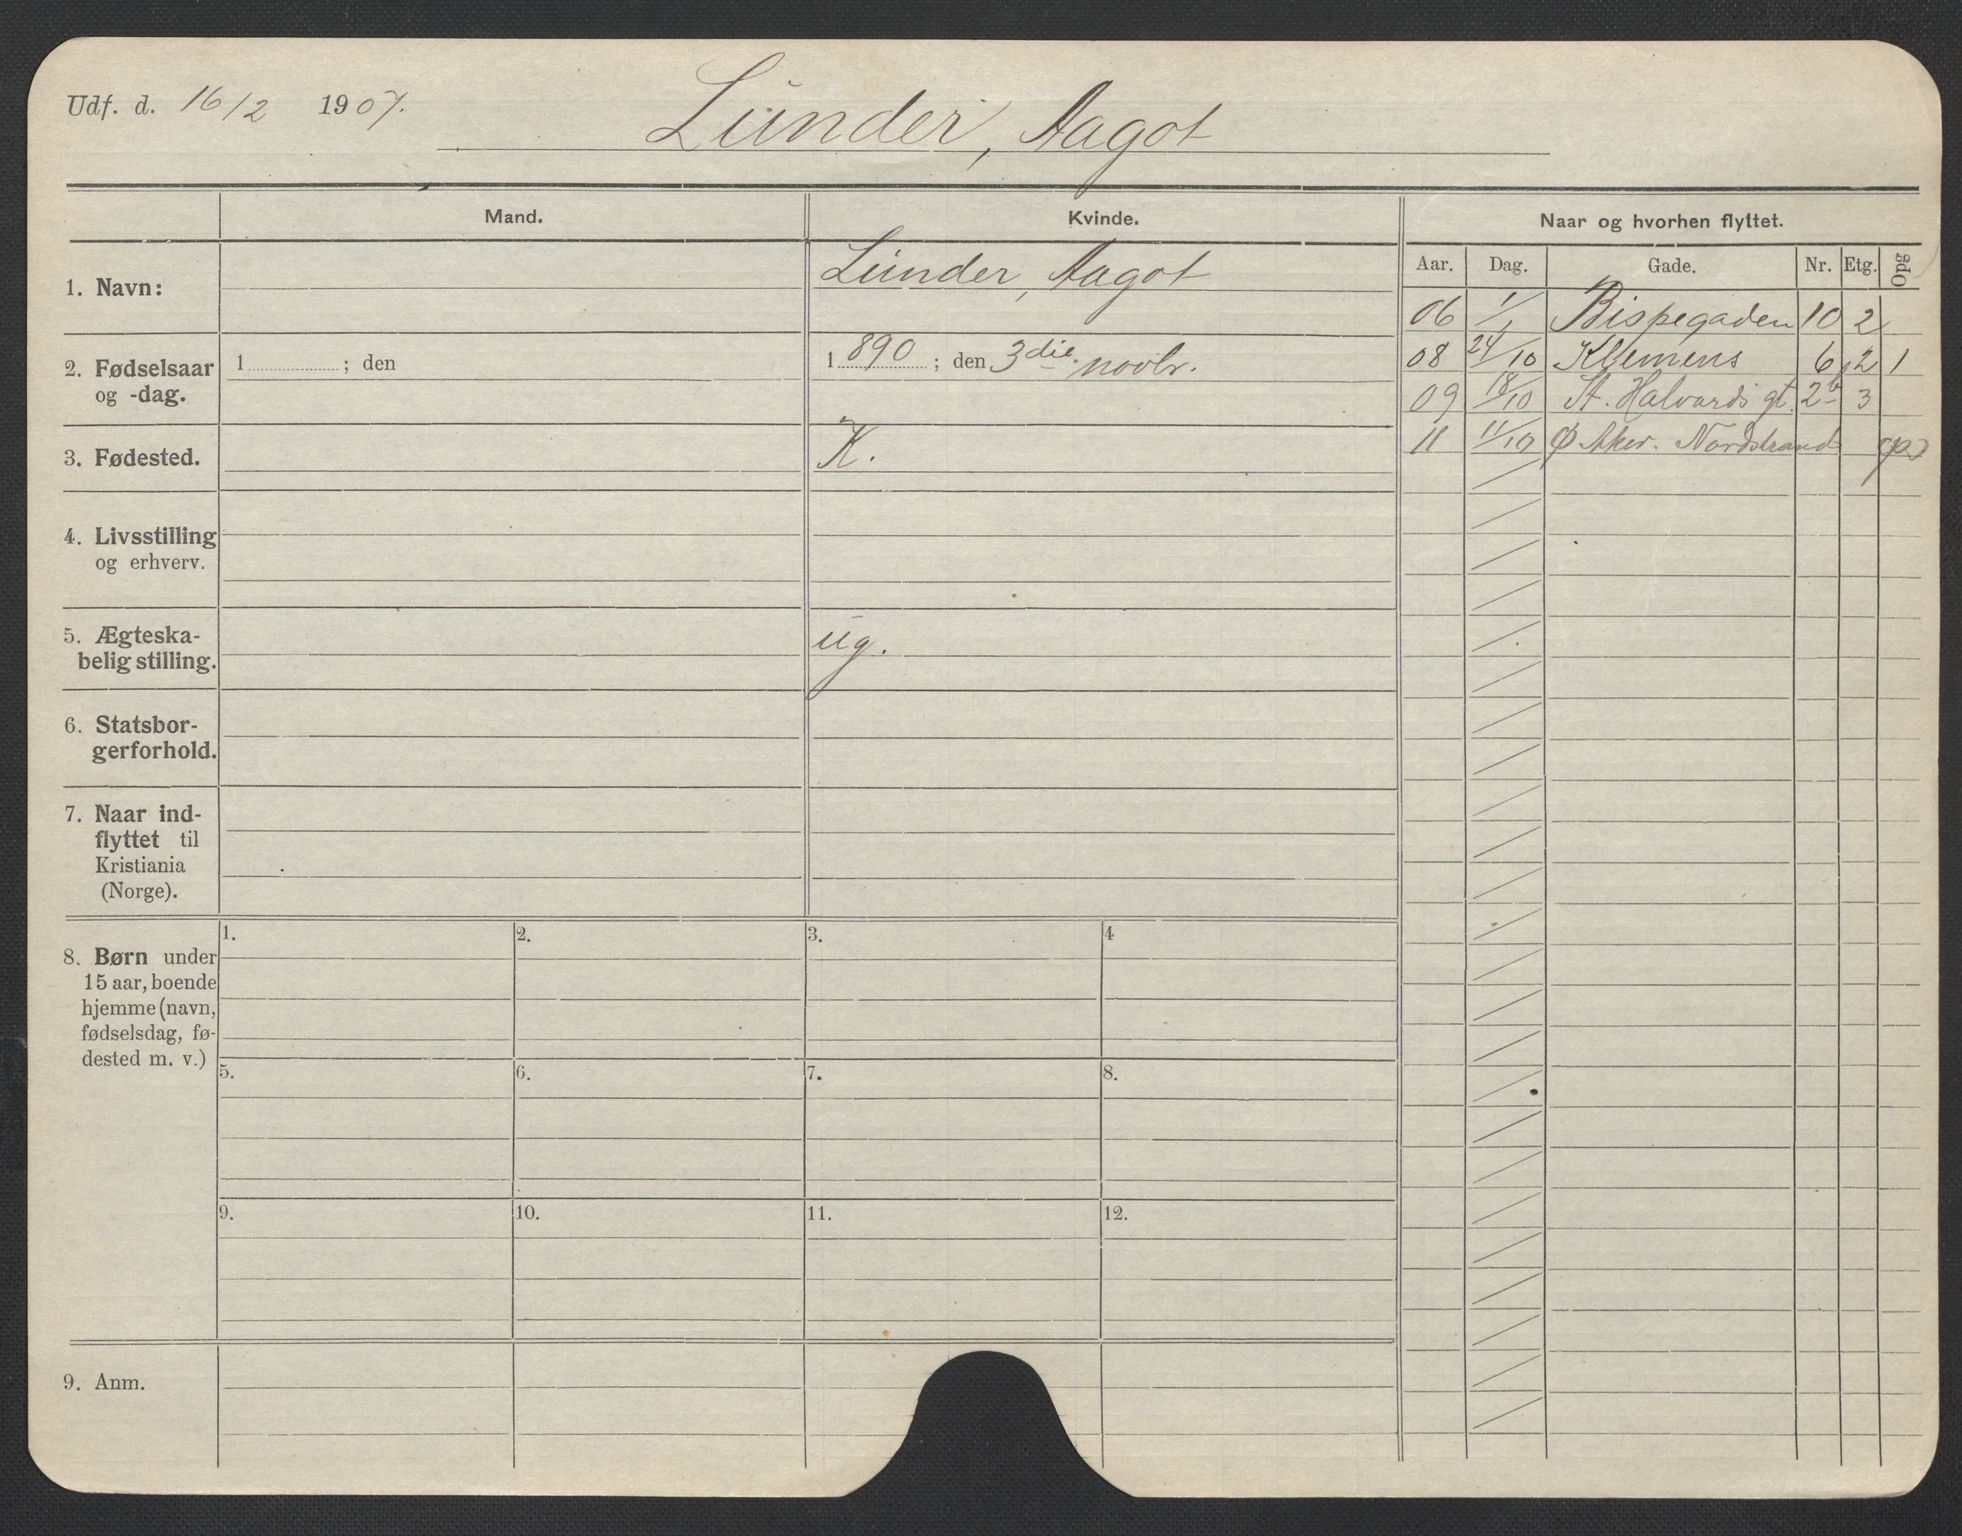 Udf. d. 16/2 1907.
Lunder, Aagot
Mand.
Kvinde.
Naar og hvorhen flyttet.
Aar. Dag. Gade. Nr. Etg. Opg
1. Navn:
Lunder, Aagot
06 1/1 Bispegaden 10 2
08 24/10 Klemens 6 2 1
09 18/10 St. Halvards gt. 2b 3
11 11/10 Ø Aker. Nordstrand
2. Fødselsaar
og -dag.
1 ; den
1 890 ; den 3die novbr.
3. Fødested.
K.
4. Livsstilling
og erhverv.
5. Ægteska-
belig stilling.
ug.
6. Statsbor-
gerforhold.
7. Naar ind-
flyttet til
Kristiania
(Norge).
8. Børn under
15 aar, boende
hjemme (navn,
fødselsdag, fø-
dested m. v.)
1. 2. 3. 4
5. 6. 7. 8.
9. 10. 11. 12.
9. Anm.